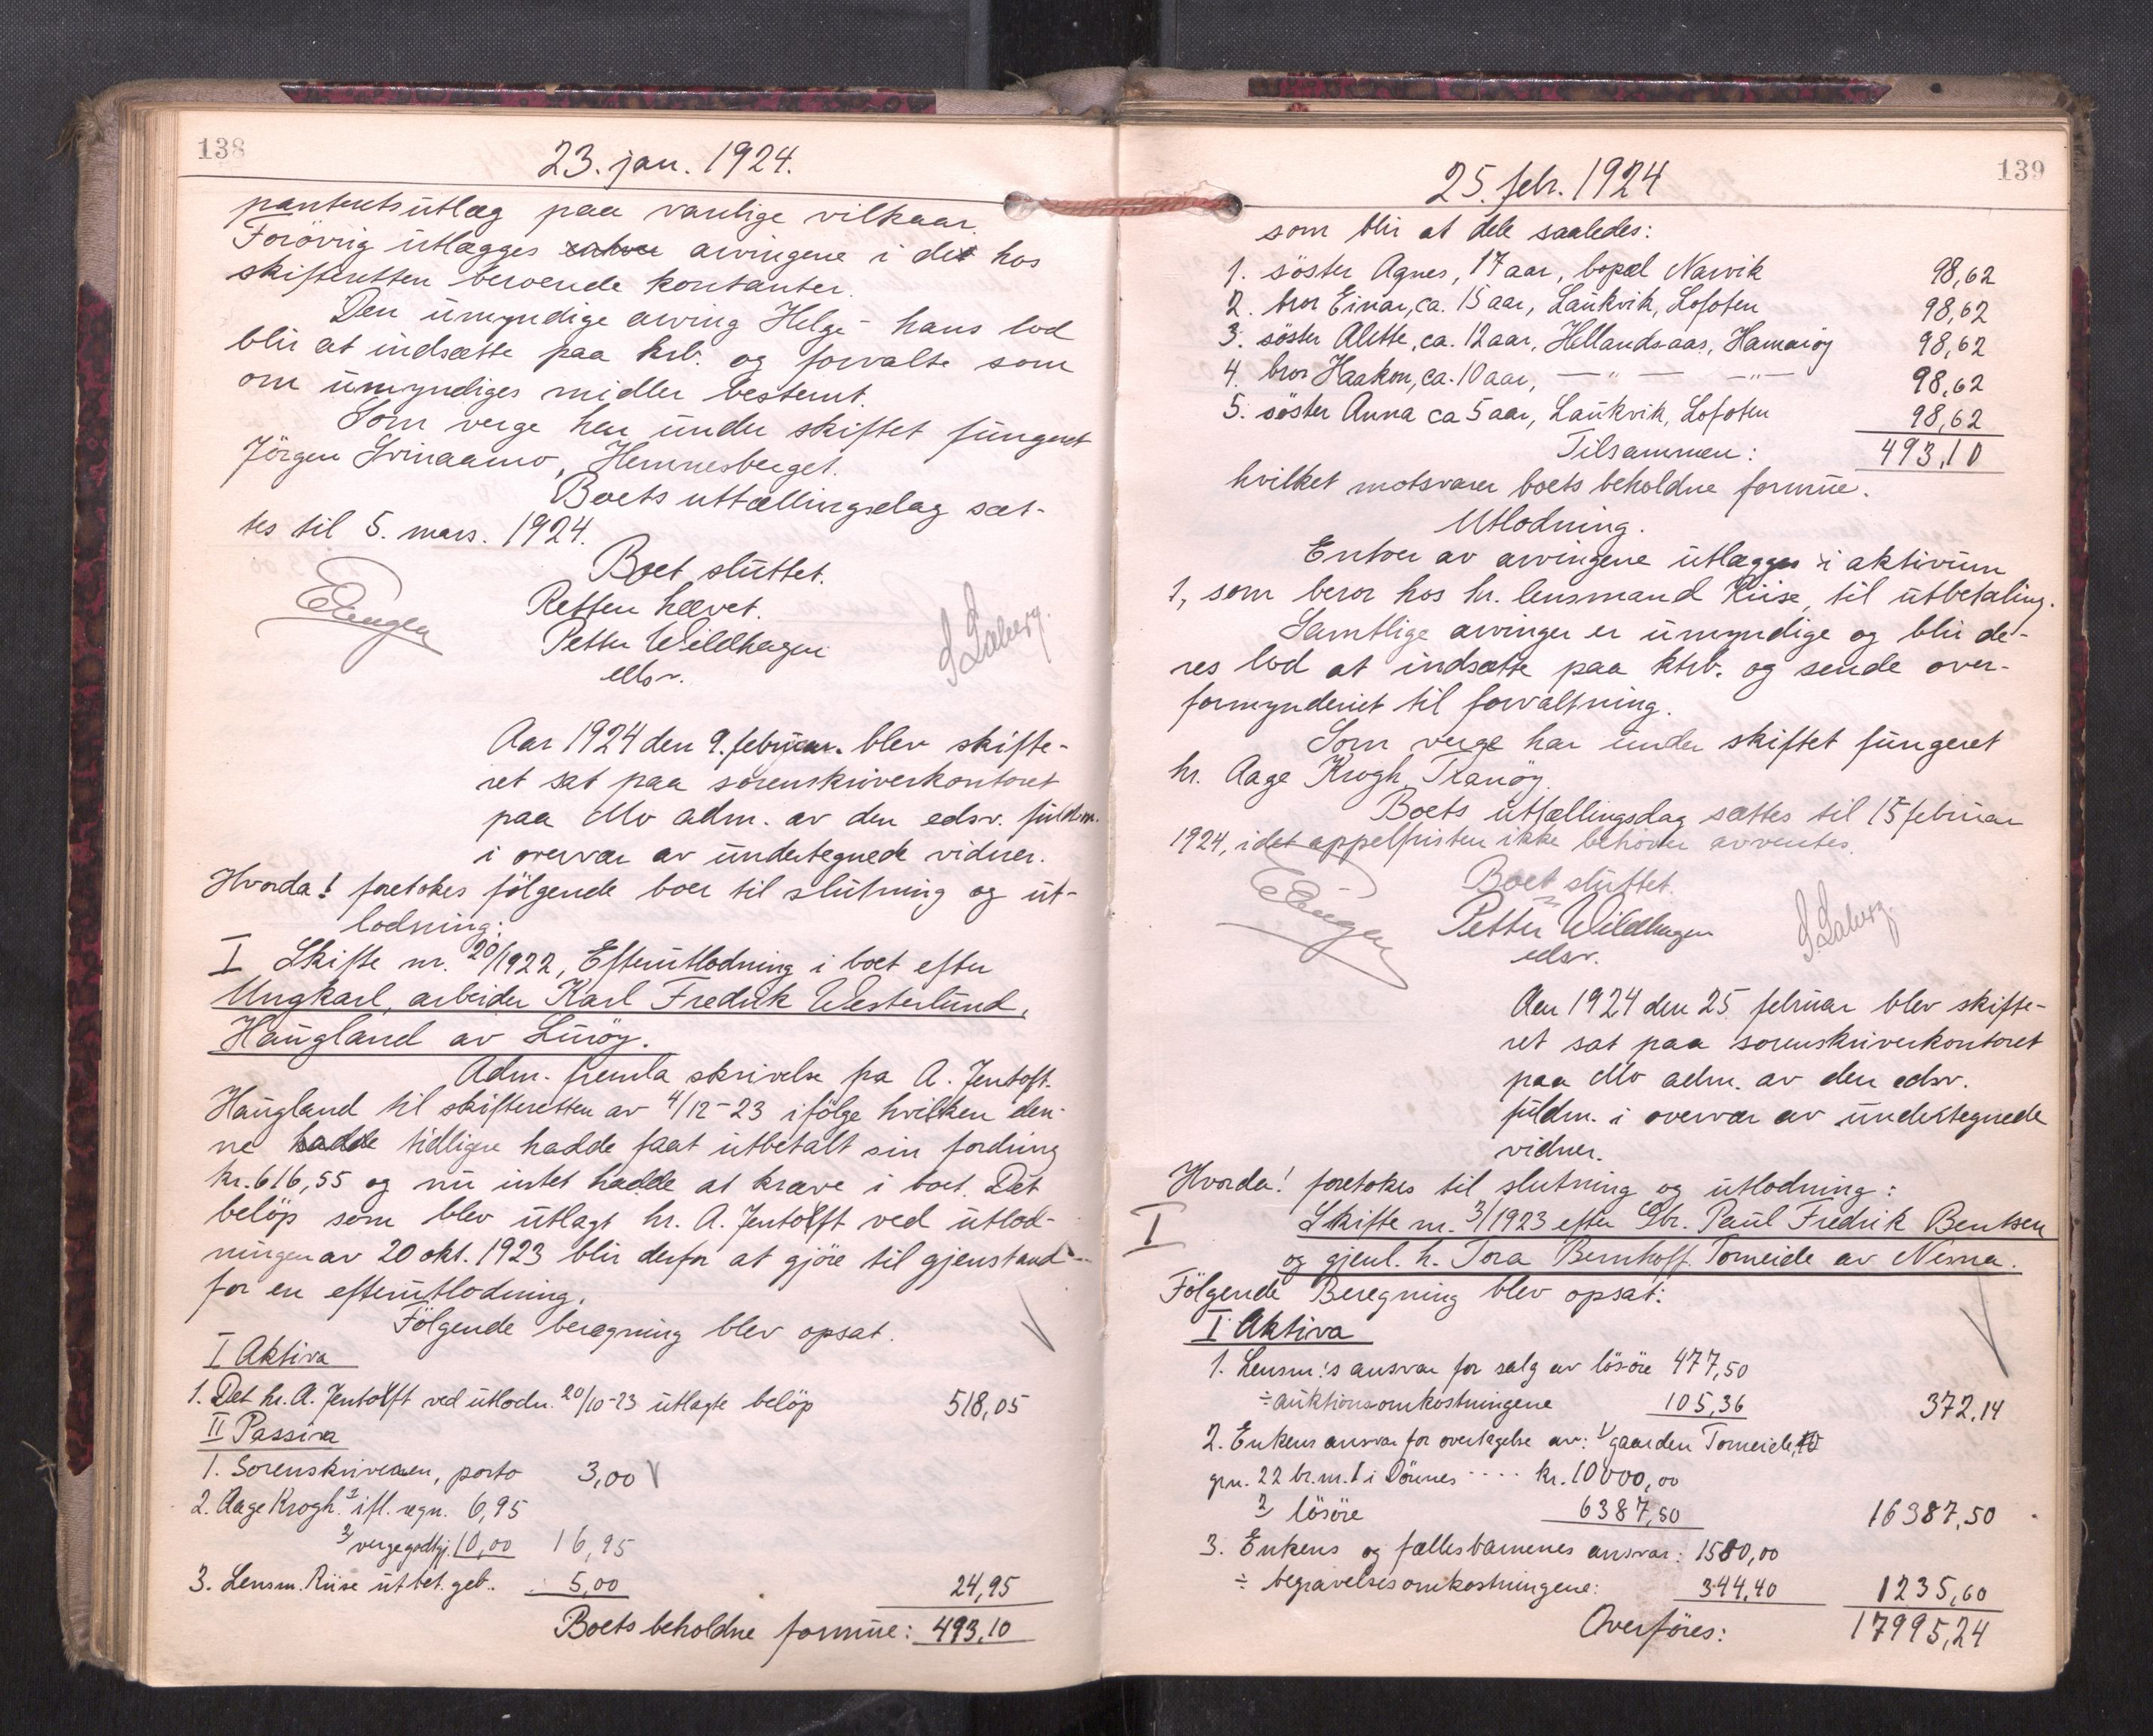 138
23. jan. 1924.
panteutsutlæg paa vanlige vilkaar.
Forövrig utlægges enhver arvingene i det hos
skifteretten beroende kontanter.
Den umyndige arving Helge - hans lod
blir at indsætte paa krb. og forvalte som
om umyndiges midler bestemt.
Som verge har under skiftet fungert
Jörgen , Hemnesberget.
Boets uttællingsdag sæt-
tes til 5. mars. 1924.
Boet sluttet.
Retten hævet.
Petter Wildhagen
edsv.
Aar 1924 den 9. februar. blev skifte-
ret sat paa sorenskriverkontoret
paa Mo adm. av den edsv. fuldm.
i overvær av undertegnede vidner.
Hvorda! foretokes fölgende boer til slutning og ut-
lodning:
I Skifte nr. 20/1922, Efterutlodning i boet efter
Ungkarl, arbeider Karl Fredrik Westerlund,
Haugland av Luröy.
Adm. fremla skrivelse fra A. Jentoft.
Haugland til skifteretten av 4/12-23 ifölge hvilken den-
ne hadde tidligere hadde faat utbetalt sin fordring
kr. 616,55 og nu intet hadde at kræve i boet. Det
belöp som blev utlagt hr. A. Jentofft ved utlod-
ningen av 20 okt. 1923 blir derfor at gjöre til gjenstand
for en efterutlodning.
Fölgende beregning blev opsat.
I Aktiva
1. Det hr. A. Jentofft ved utlodn. 20/10-23 utlagte belöp 518,05
II Passiva
1. Sorenskriveren, porto 3,00
2. Aage Krogh. 1/ ifl. regn. 6,95
2/ vergegodtgj. 10,00 16,95
3. Lensm. Riise utbet. geb.. 5,00 24,95
Boets beholdne formue: 493,10
139
25. febr. 1924
som blir at dele saaledes:
1. söster Agnes, 17 aar, bopæl Narvik 98,62
2. bror Einar, ca. 15 aar, Laukvik, Lofoten 98,62
3. söster Alette, ca. 12 aar, Hellandsaas, Hamaröy 98,62
4. bror Haakon, ca. 10 aar, — " — — " — 98,62
5. söster Anna ca 5 aar, Laukvik, Lofoten 98,62
Tilsammen: 493,10
hvilket motsvarer boets beholdne formue.
Utlodning.
Enhver av arvingene utlægges i aktivum
1, som beror hos hr. lensmand Riise, til utbetaling.
Samtlige arvinger er umyndige og blir de-
res lod at indsætte paa krb. og sende over-
formynderiet til forvaltning.
Som verge har under skiftet fungeret
hr. Aage Krogh, Tranöy.
Boets uttællingsdag sættes til 15 februar
1924, idet appelfristen ikke behöver avventes.
Boet sluttet.
Petter Wildhagen
edsv.
Aar 1924 den 25. februar blev skifte-
ret sat paa sorenskriverkontoret
paa Mo adm. av den edsv.
fuldm. i overvær av undertegnede
vidner.
Hvorda! foretokes til slutning og utlodning:
I Skifte nr. 3/1923 efter Gbr. Paul Fredrik Bentsen
og gjenl. h. Tora Bernhoff. Tomeide av Nesna.
Fölgende Beregning blev opsat:
I Aktiva
1. Lensm.'s ansvar for salg av lösöre 477,50
÷ auktionsomkostningene 105,36 372,14
2. Enkens ansvar for overtagelse av: 1/ gaarden Tomeide,
grn. 22 br.nr. 1 i Dönnes .... kr. 10000,00
2/ lösöre 6387,50 16387,50
3. Enkens og fællesbarnenes ansvar: 1580,00
÷ begravelsesomkostningene: 344,40 1235,60
Overföres: 17995,24